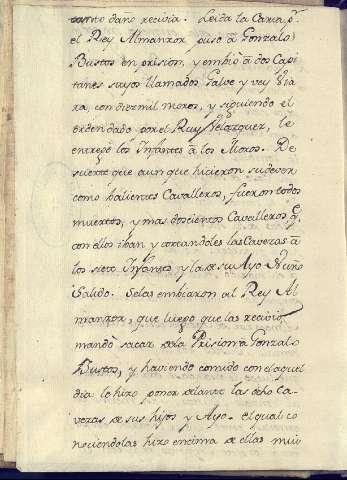 tanto daño recivia. Leida la Carta pr.
el Rey Almanzor puso â Gonzalo
Bustos en prision, y embio â dos Capi
tanes suyos llamados Galve y vey Via
ra, con diez mil moros, y siguiendo el
orden dado por el Ruy Velazquez, le
entregó los Infantes â los Moros. De
suerte que aunque hicieron su dever
como balientes Cavalleros, fueron todos
muertos, y mas doscientos Cavalleros q.
con ellos iban y cortandoles las Cavezas â
los siete Infantes y la de su Ayo Nuño
Salido. Selas embiaron al Rey Al
manzor, que luego que las recivió
mando sacar dela Prision â Gonzalo
Bustos, y haviendo comido con el aquel
dia le hizo poner delante las ocho Ca
vezas de sus hijos y Ayo. el qual co
nociendolas hizo encima de ellas muy